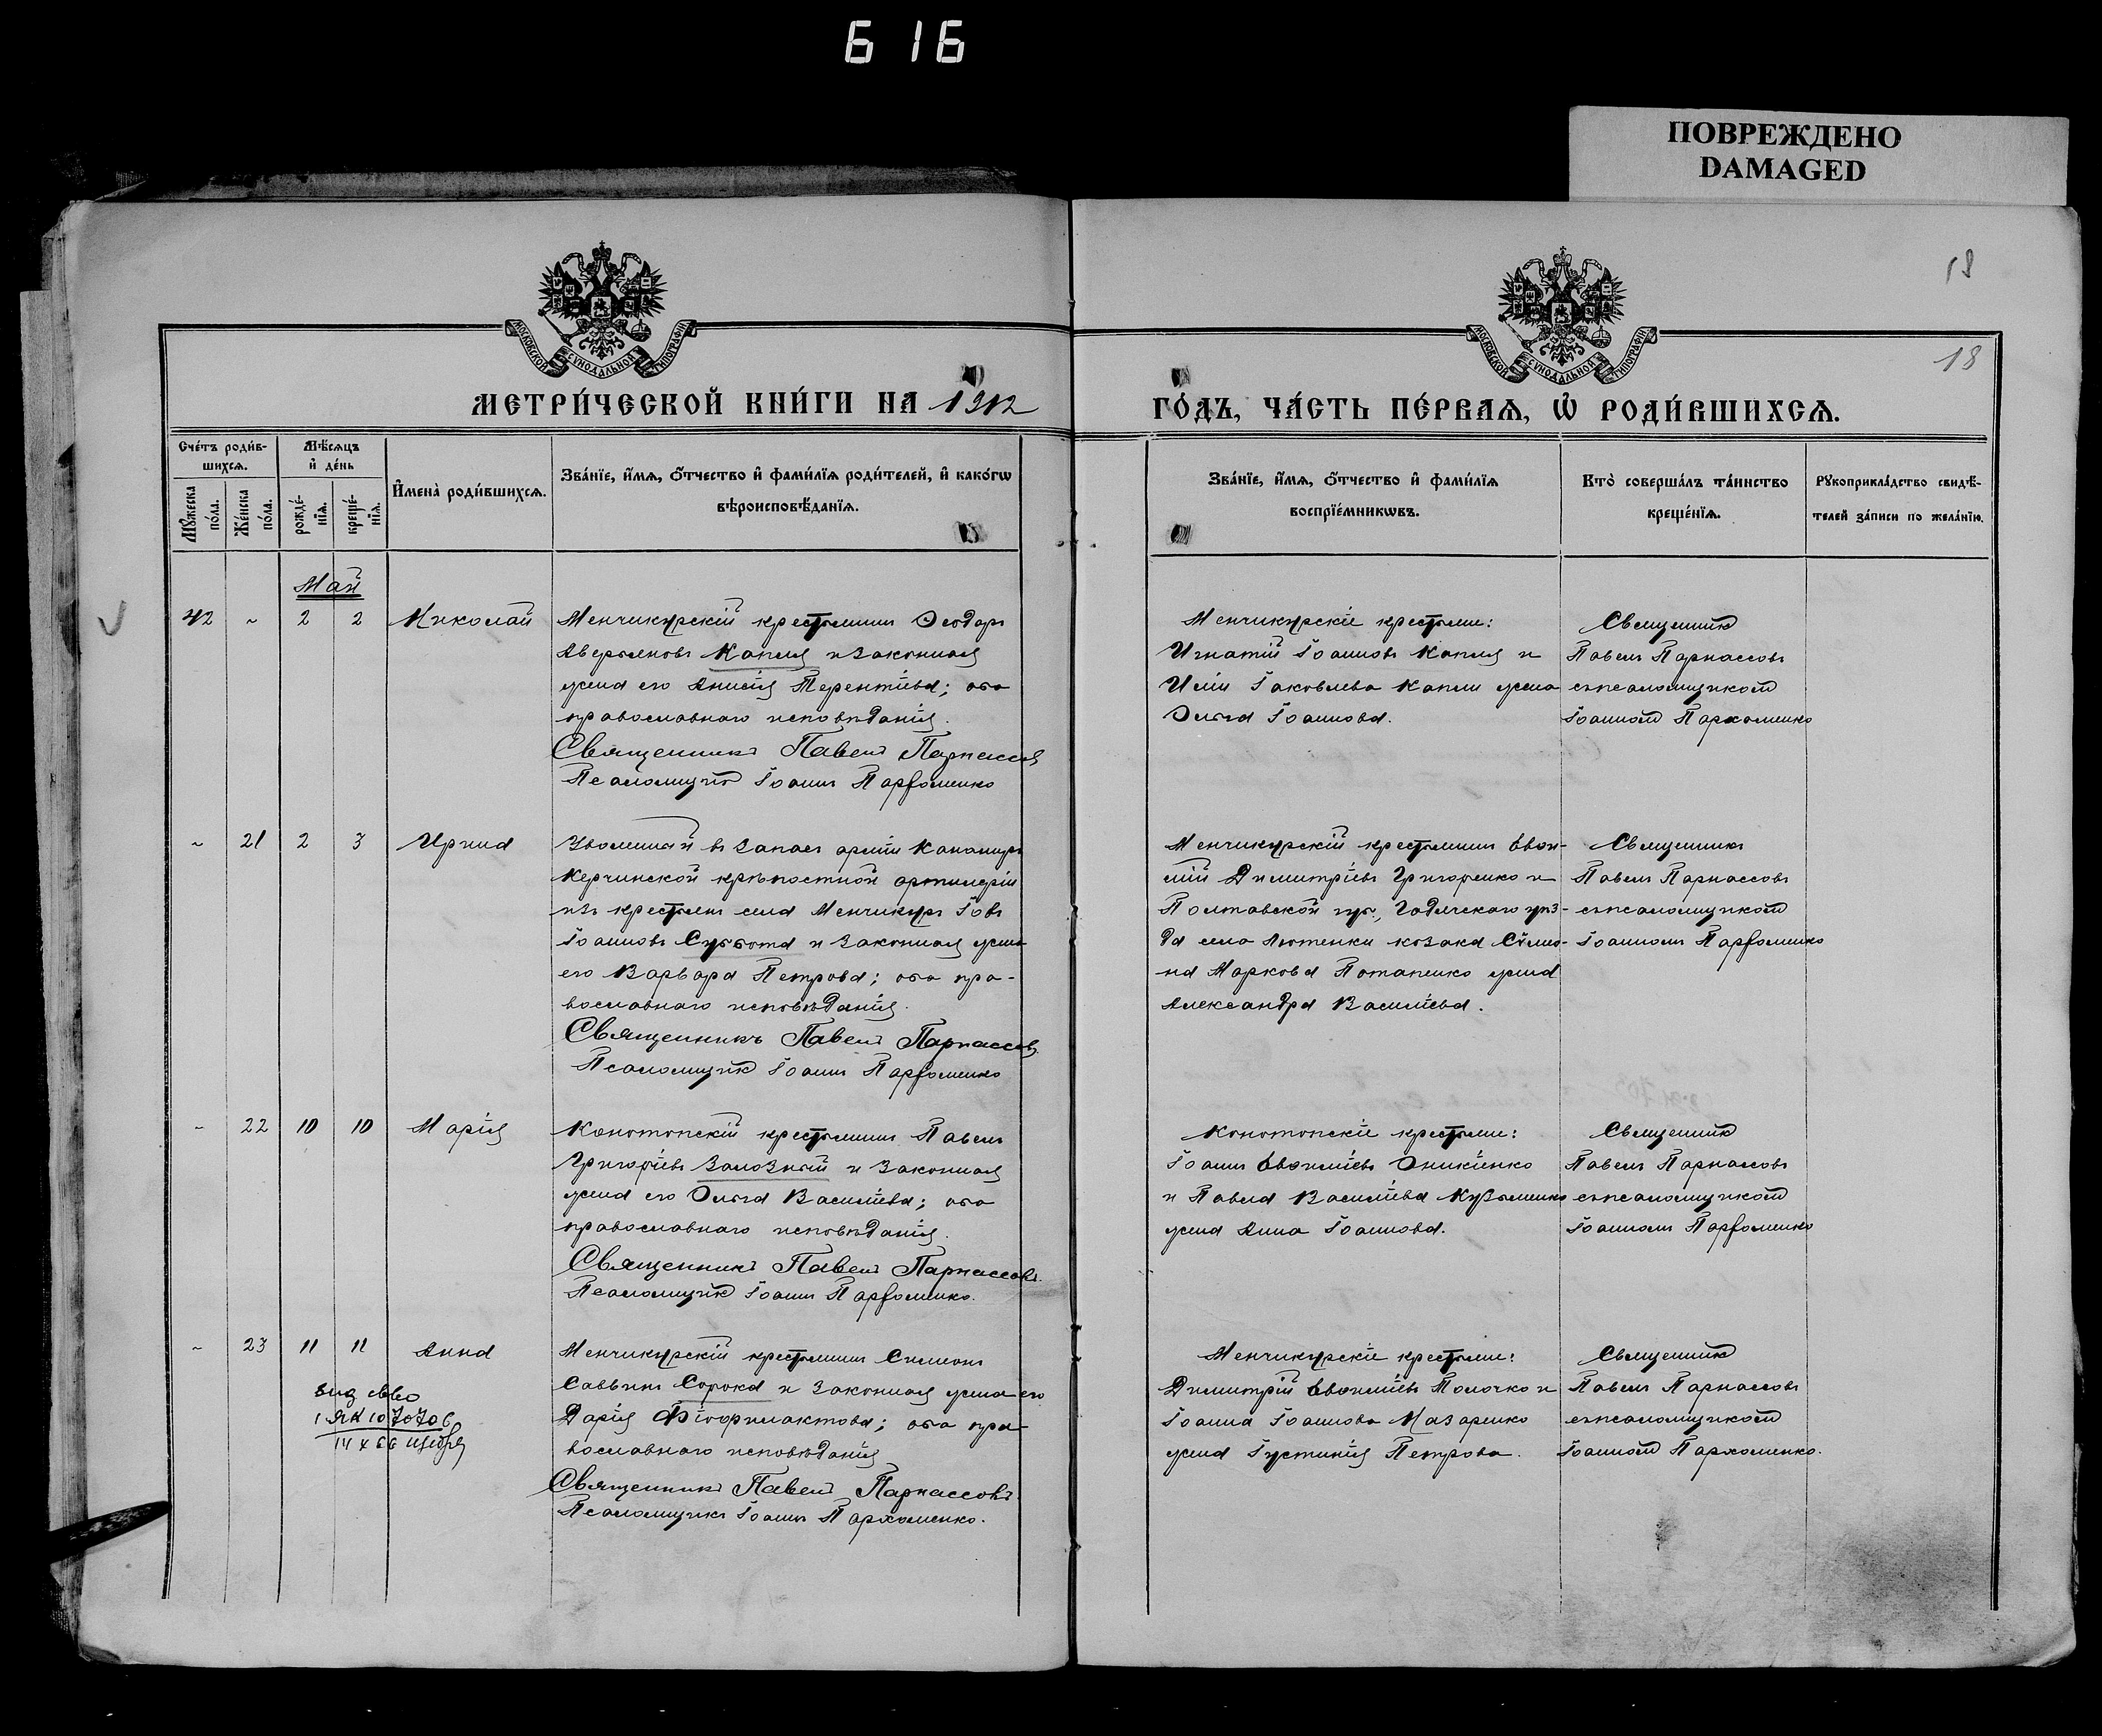 616
ПОВРЕЖДЕНО
DAMAGED
18
18
МОСКОВСКОЙ СѴНОДАЛЬНОЙ ТИПОГРАФІИ
МОСКОВСКОЙ СѴНОДАЛЬНОЙ ТИПОГРАФІИ
МЕТРИ́ЧЕСКОЙ КНИ́ГИ НА 1912 ГО́ДЪ, ЧА́СТЬ ПЕ́РВАѦ, Ѡ҆ РОДИ́ВШИХСѦ.
Сче́тъ роди́в-
шихсѧ.
Мѣ́сѧцъ
и҆ де́нь
Мꙋ́жеска по́ла.
Же́нска по́ла.
рожде́-нїѧ.
креще́-нїѧ.
И҆мена̀ роди́вшихсѧ.
Зва́нїе, и҆́мѧ, ѻ҆́тчество и҆ фами́лїѧ роди́телей, и҆ како́гѡ
вѣроисповѣ́данїѧ.
Зва́нїе, и҆́мѧ, ѻ҆́тчество и҆ фами́лїѧ
воспрїе́мникѡвъ.
Кто̀ соверша́лъ та́инство
креще́нїѧ.
Рꙋкоприкла́дство свидѣ́-
телей за́писи по жела́нїю.
Май
42 ~ 2 2 Николай
Менчикурскій крестьянинъ Ѳеодоръ
Аверьяновъ Капля и законная
жена его Анисія Терентіева; оба
православнаго исповѣданія.
Священникъ Павелъ Парнассовъ
Псаломщикъ Іоаннъ Парѳоменко
Менчикурскіе крестьяне:
Игнатій Іоанновъ Капля и
Иліи Іаковлева Капли жена
Ольга Іоаннова.
Священникъ
Павелъ Парнассовъ
съ псаломщикомъ
Іоанномъ Пархоменко
~ 21 2 3 Ирина
Уволенный въ запасъ арміи канониръ
Керчинской крѣпостной артилеріи
изъ крестьянъ села Менчикуръ Іовъ
Іоанновъ Суббота и законная жена
его Варвара Петрова; оба пра-
вославнаго исповѣданія.
Священникъ Павелъ Парнассовъ
Псаломщикъ Іоаннъ Парѳоменко
Менчикурскій крестьянинъ Евѳи-
мій Димитріевъ Григоренко и
Полтавской губ., Гадячскаго уѣз-
да села Лютенки козака Сѵмео-
на Маркова Потапенко жена
Александра Василіева.
Священникъ
Павелъ Парнассовъ
съ псаломщикомъ
Іоанномъ Парѳоменко
~ 22 10 10 Марія
Конотопскій крестьянинъ Павелъ
Григоріевъ Залозный и законная
жена его Ольга Василіева; оба
православнаго исповѣданія.
Священникъ Павелъ Парнассовъ
Псаломщикъ Іоаннъ Парѳоменко.
Конотопскіе крестьяне:
Іоаннъ Евѳиміевъ Оникіенко
и Павла Василіева Кузьменко
жена Анна Іоаннова.
Священникъ
Павелъ Парнассовъ
съ псаломщикомъ
Іоанномъ Парѳоменко
~ 23 11 11 Анна
Менчикурскій крестьянинъ Симеонъ
Саввинъ Сорока и законная жена его
Дарія Ѳеофилактова; оба пра-
вославнаго исповѣданія
Священникъ Павелъ Парнассовъ.
Псаломщикъ Іоаннъ Пархоменко.
Менчикурскіе крестьяне:
Димитрій Евѳиміевъ Толочко и
Іоанна Іоаннова Назаренко
жена Іустинія Петрова.
Священникъ
Павелъ Парнассовъ
съ псаломщикомъ
Іоанномъ Пархоменко.
107070
14 X 66